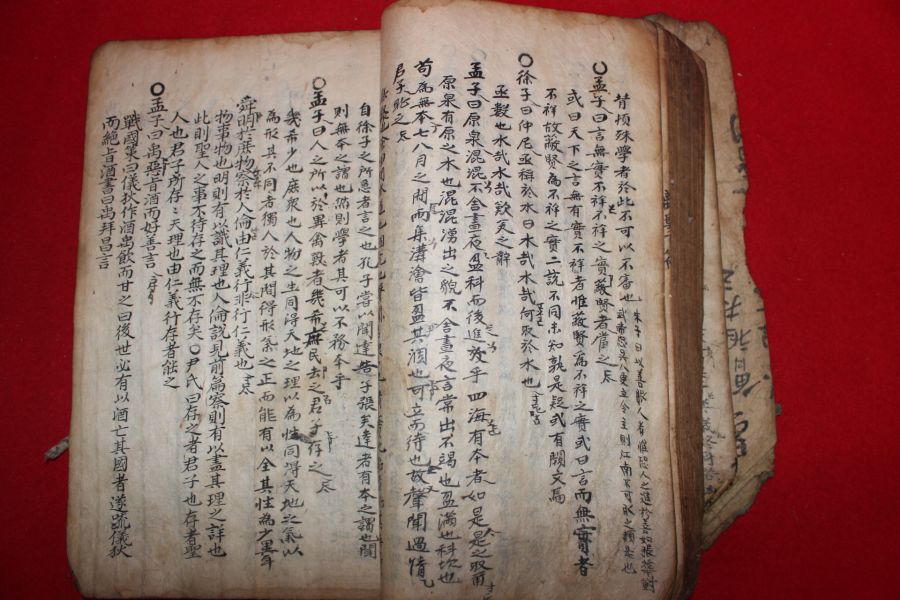 背頓殊學者於此不可以不審也
朱子曰以善服人者惟恐人之進於善如張華對
武帝恐吳人更立令主則江南不可取之類是也
○孟子曰言無實不祥不祥之實蔽賢者當之
或曰天下之言無有實不祥者惟蔽賢爲不祥之實或曰言而無實者
不祥故蔽賢爲不祥之實二說不同未知孰是疑或有闕文焉
○徐子曰仲尼亟稱於水曰水哉水哉何取於水也
亟數也水哉水哉歎美之辭
孟子曰原泉混混不舍晝夜盈科而後進放乎四海有本者如是是之取爾
原泉有原之水也混混湧出之貌不舍晝夜言常出不竭也盈滿也科坎也
苟爲無本七八月之間雨集溝澮皆盈其涸也可立而待也故聲聞過情
君子恥之
自徐子之所急者言之也孔子嘗以聞達告子張矣達者有本之謂也聞
則無本之謂也然則學者其可以不務本乎
○孟子曰人之所以於異禽獸者幾希庶民去之君子存之
幾希少也庶衆也人物之生同得天地之理以爲性同得天地之氣以
爲形其不同者獨人於其間得形氣之正而能有以全其性爲少異耳
舜明於庶物察於人倫由仁義行非行仁義也
物事物也明則有以識其理也人倫說見前篇察則有以盡其理之詳也
此則聖人之事不待存之而無不存矣○尹氏曰存之者君子也存者聖
人也君子所存〻天理也由仁義行存者能之
○孟子曰禹惡旨酒而好善言
戰國策曰儀狄作酒禹飮而甘之曰後世必有以酒亡其國者遂疏儀狄
而絶旨酒書曰禹拜昌言